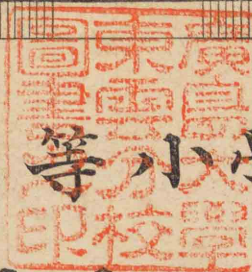 廣島大學
東雲分校
圖書之印
等小